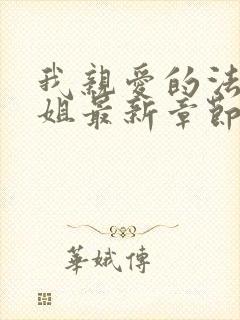 我親愛的法
姐最新章節
華娥傳